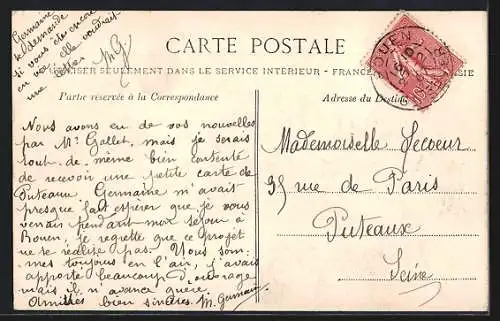 Germaine
te demande
si vous êtes encore
en vac, elle voudrait
une lettre MG
CARTE POSTALE
UTILISER SEULEMENT DANS LE SERVICE INTERIEUR - FRANCE
Partie réservée à la Correspondance
Adresse du Destin
ROUEN
Nous avons eu de vos nouvelles
par Mr Gallet, mais je serais
tout de même bien contente
de recevoir une petite carte de
Puteaux Germaine m'avait
presque fait espérer que je vous
verrais pendant mon séjour à
Rouen, je regrette que ce projet
ne se réalise pas. Nous som-
mes toujours en l'air, j'avais
apporté beaucoup d'ouvrage
mais il n'avance guère.
Amitiés bien sincères. M. Germain.
Mademoiselle Lecoeur
35 rue de Paris
Puteaux
Seine